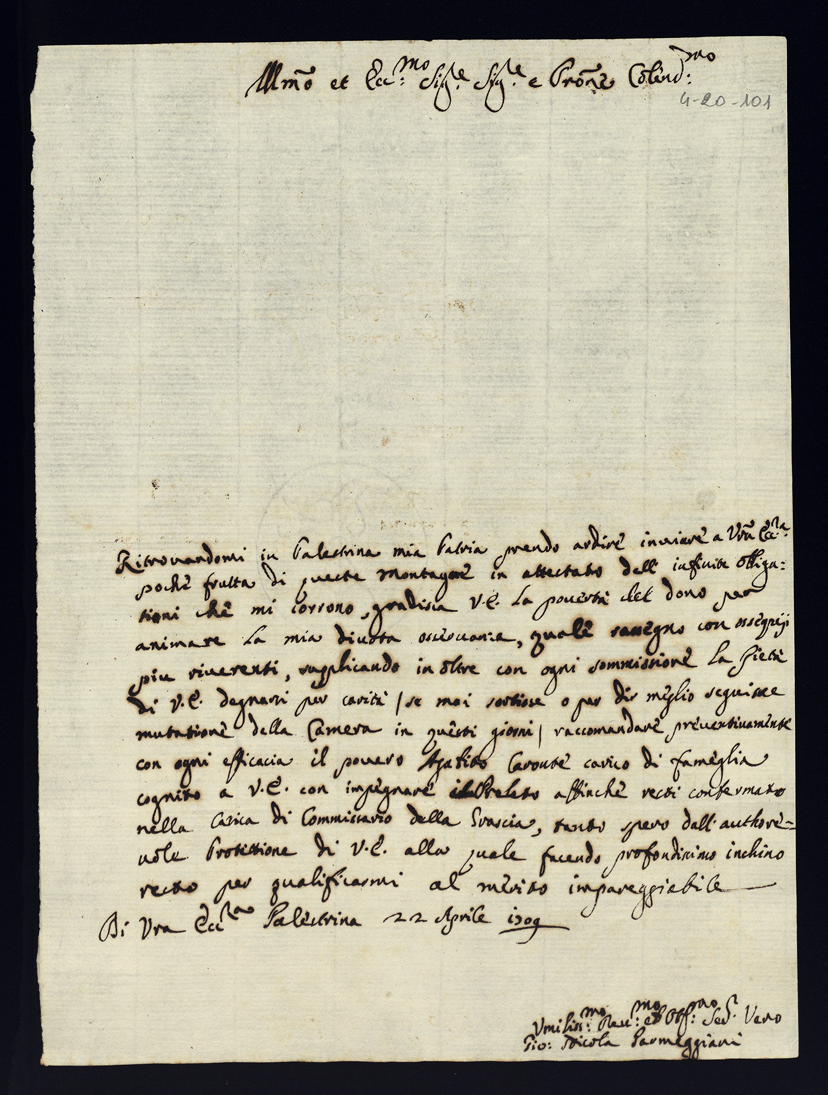 Illmo et Ecc:mo Sig:re Sig:re e Prone Colend:mo
4-20-101
Ritrovandomi in Palestrina mia Patria prendo ardire inviare a Vra Ecc:za
poche frutta di queste montagne in attestato dell' infinite obliga:
tioni che mi corrono, gradisca V.E. la povertà del dono per
animare la mia divota osservanza, quale rassegno con ossequij
piu riverenti, supplicando in oltre con ogni sommissione la Pietà
di V.E. degnarsi per carità / se mai sortisse o per dir meglio seguisse
mutatione della Camera in questi giorni / raccomandare preventivamente
con ogni efficacia il povero Agapito carico di fameglia
cognito a V.E. con impegnare il Prelato affinche resti confermato
nella Carica di Commissario della Grascia, tanto spero dall' authore=
vole Protettione di V.E. alla quale facendo profondissimo inchino
resto per qualificarmi al merito impareggiabile
Di Vra Ecc:za Palestrina 22 Aprile 1709
Umiliss:mo Dev:mo et Obl:mo Ser:e Vero
Gio: Nicola Parmeggiani